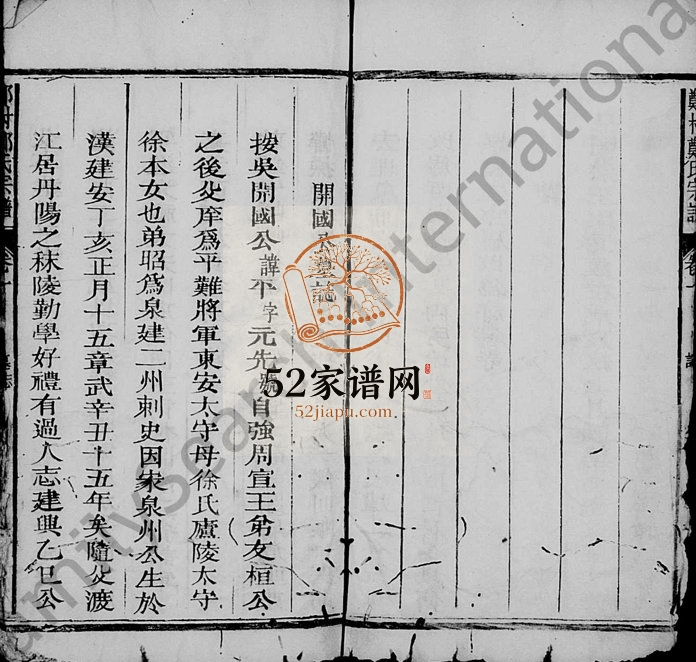 鄭村鄭氏宗譜
卷十
開國公墓誌
按吳開國公諱平字元先號自強周宣王弟友桓公
之後父庠爲平難將軍東安太守母徐氏廬陵太守
徐本女也弟昭爲泉建二州刺史因家泉州公生於
漢建安丁亥正月十五章武辛丑十五年矣隨父渡
江居丹陽之秣陵勤學好禮有過人志建興乙巳公
氏宗譜
卷十
墓誌
52家谱网
52jiapu.com
familysearch international